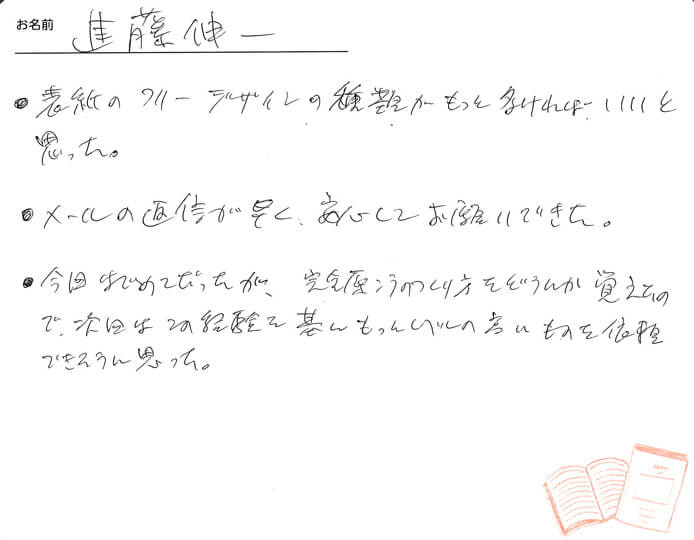 お名前 進藤伸一
● 表紙のフリーデザインの種類がもっと多ければいいと
思った。
● メールの返信が早く、安心してお願いできた。
● 今回はじめてだったが、完全原こうのつくり方をどうにか覚えたの
で、次回はこの経験を基にもっとレベルの高いものを依頼
できそうに思った。